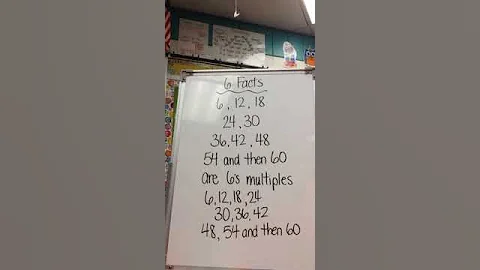 6 Facts
6, 12, 18
24, 30
36, 42, 48
54 and then 60
are 6's multiples
6, 12, 18, 24
30, 36, 42
48, 54 and then 60